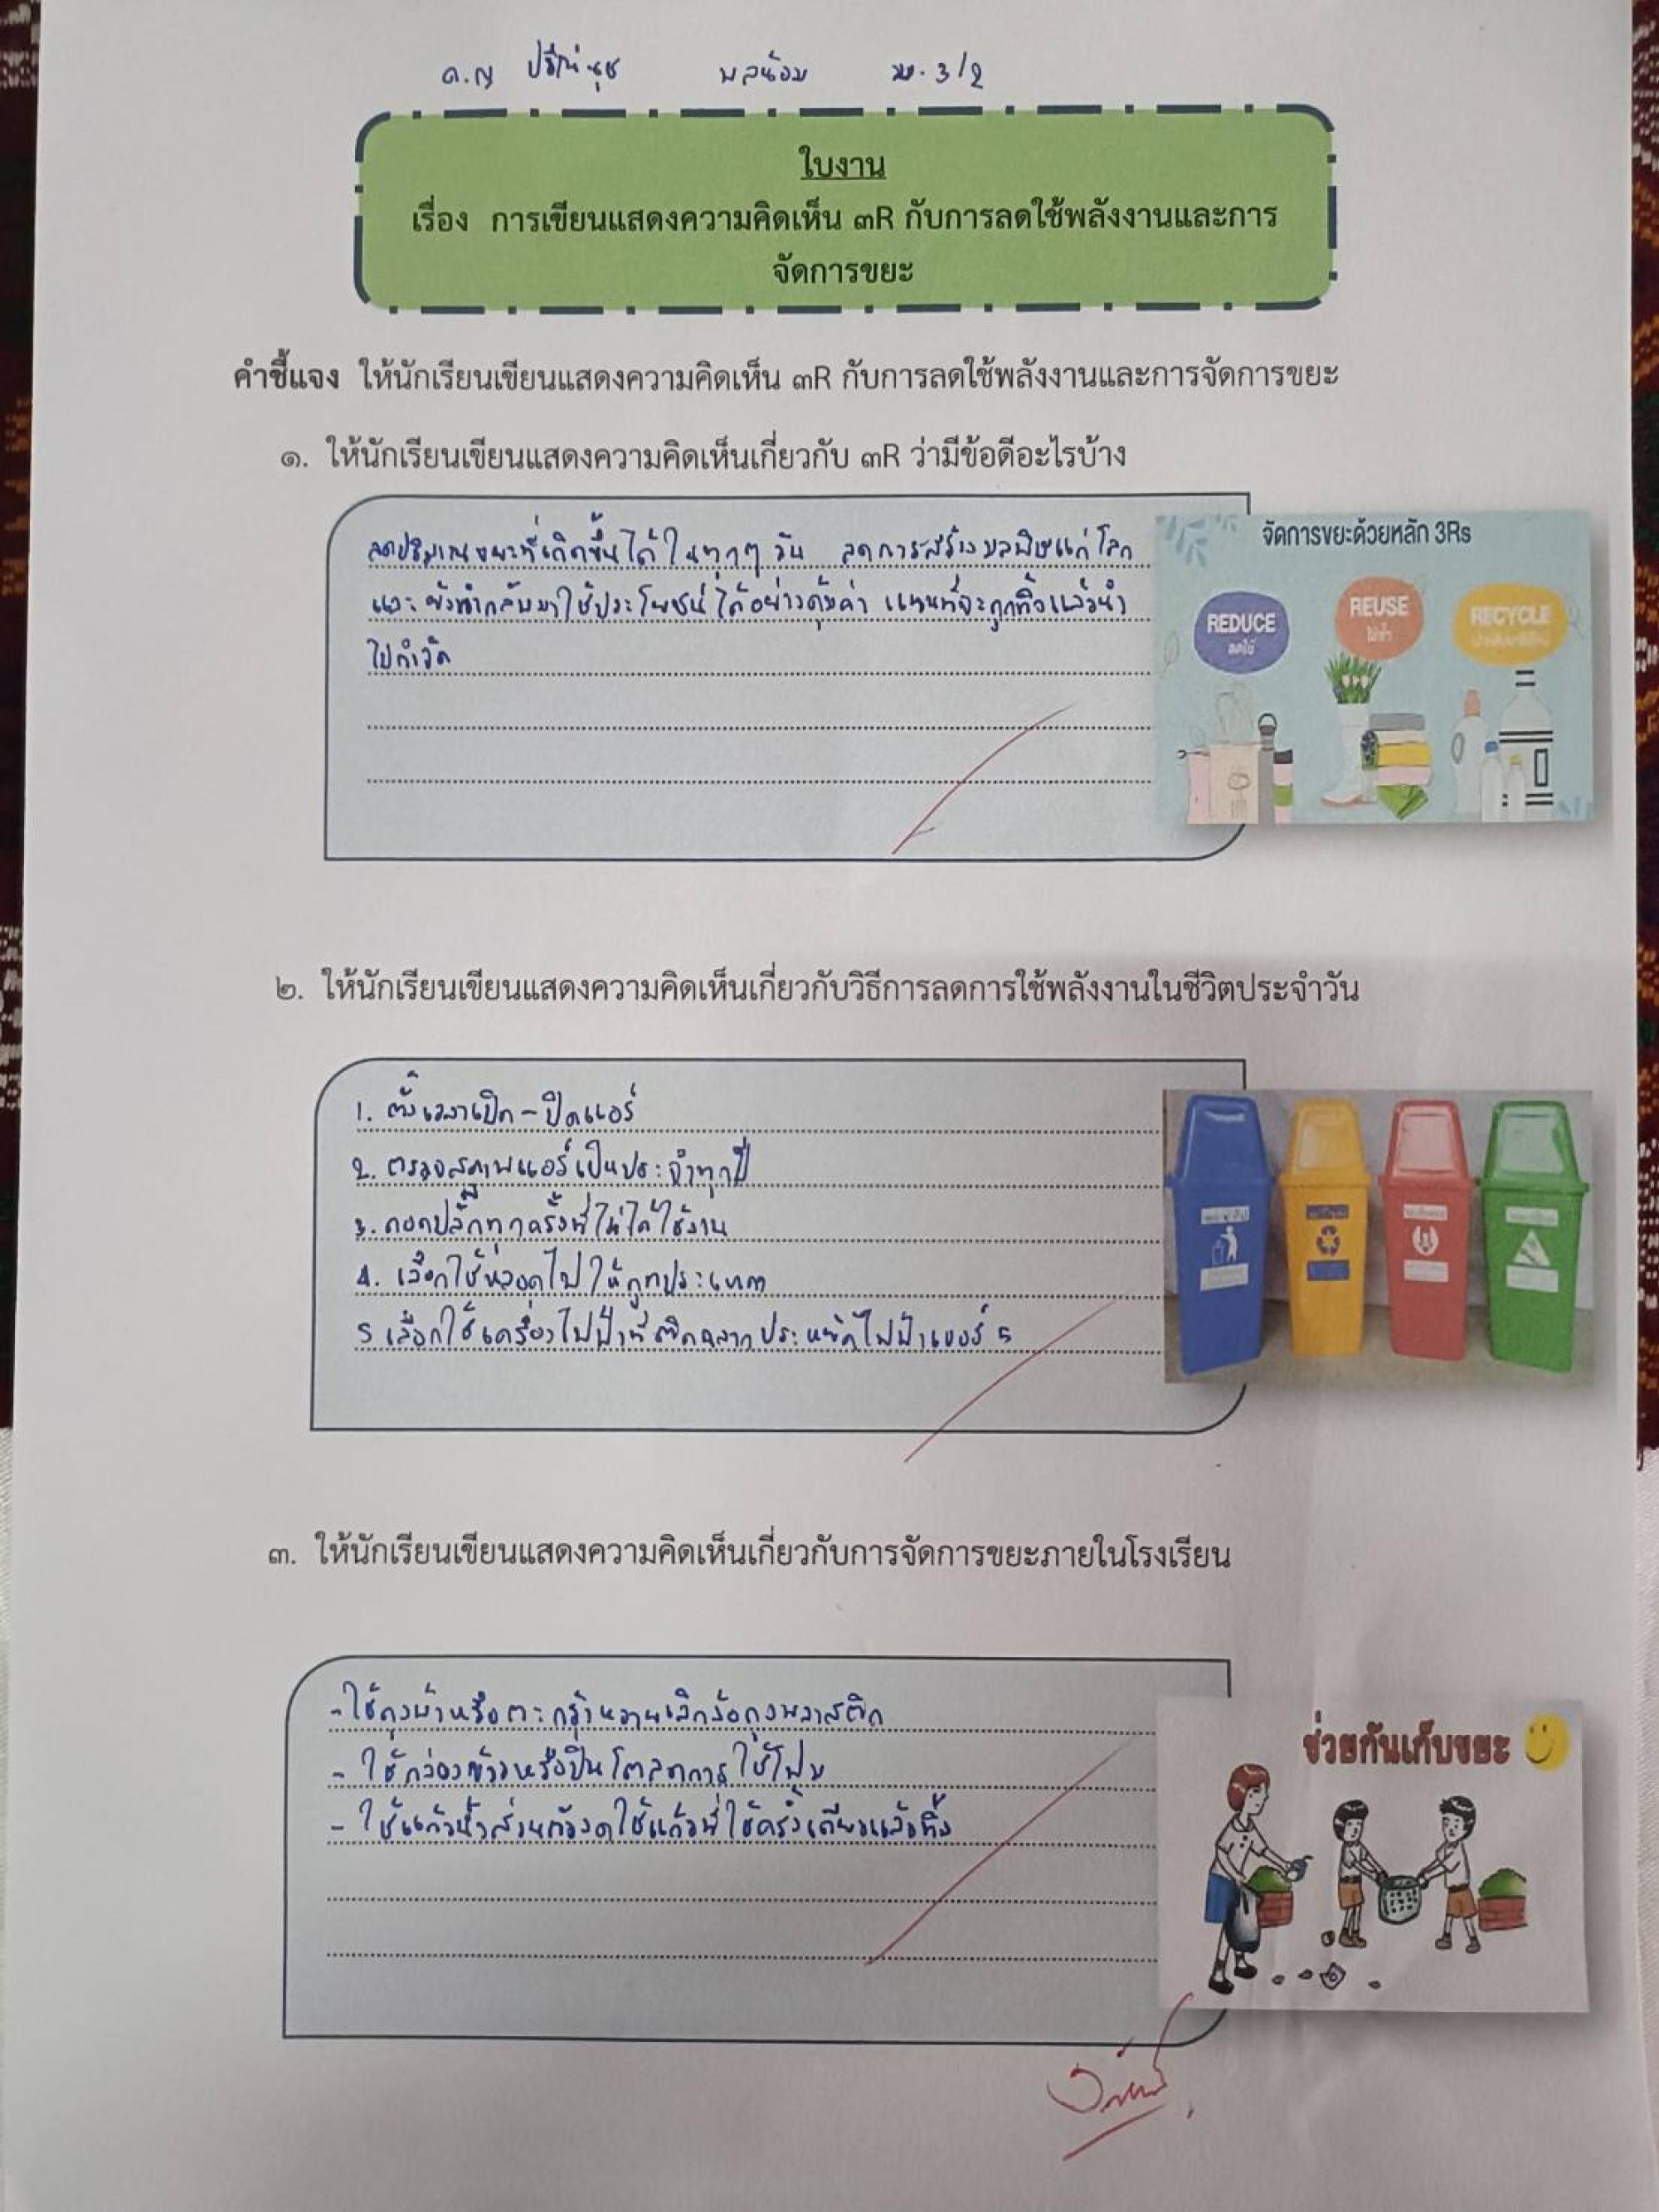 ด.ญ ปวีณ์นุช พลน้อม ม.3/2
ใบงาน
เรื่อง การเขียนแสดงความคิดเห็น ๓R กับการลดใช้พลังงานและการ
จัดการขยะ
คำชี้แจง ให้นักเรียนเขียนแสดงความคิดเห็น ๓R กับการลดใช้พลังงานและการจัดการขยะ
๑. ให้นักเรียนเขียนแสดงความคิดเห็นเกี่ยวกับ ๓R ว่ามีข้อดีอะไรบ้าง
ลดปริมาณขยะที่เกิดขึ้นได้ในทุกๆ วัน ลดการสร้างมลพิษแก่โลก
และยังนำกลับมาใช้ประโยชน์ได้อย่างคุ้มค่า แทนที่จะถูกทิ้งแล้วนำ
ไปกำจัด
จัดการขยะด้วยหลัก 3Rs
REDUCE
ลดใช้
REUSE
ใช้ซ้ำ
RECYCLE
๒. ให้นักเรียนเขียนแสดงความคิดเห็นเกี่ยวกับวิธีการลดการใช้พลังงานในชีวิตประจำวัน
1. ตั้งเวลาเปิด-ปิดแอร์
2. ตรวจสภาพแอร์เป็นประจำทุกปี
3. ถอดปลั๊กทุกครั้งที่ไม่ได้ใช้งาน
4. เลือกใช้หลอดไฟให้ถูกประเภท
5 เลือกใช้เครื่องไฟฟ้าที่ติดฉลากประหยัดไฟฟ้าเบอร์ 5
๓. ให้นักเรียนเขียนแสดงความคิดเห็นเกี่ยวกับการจัดการขยะภายในโรงเรียน
- ใช้ถุงผ้าหรือตะกร้าหวายเลิกง้อถุงพลาสติก
- ใช้กล่องข้าวหรือปิ่นโตลดการใช้โฟม
- ใช้แก้วน้ำส่วนตัวงดใช้แก้วที่ใช้ครั้งเดียวแล้วทิ้ง
ช่วยกันเก็บขยะ